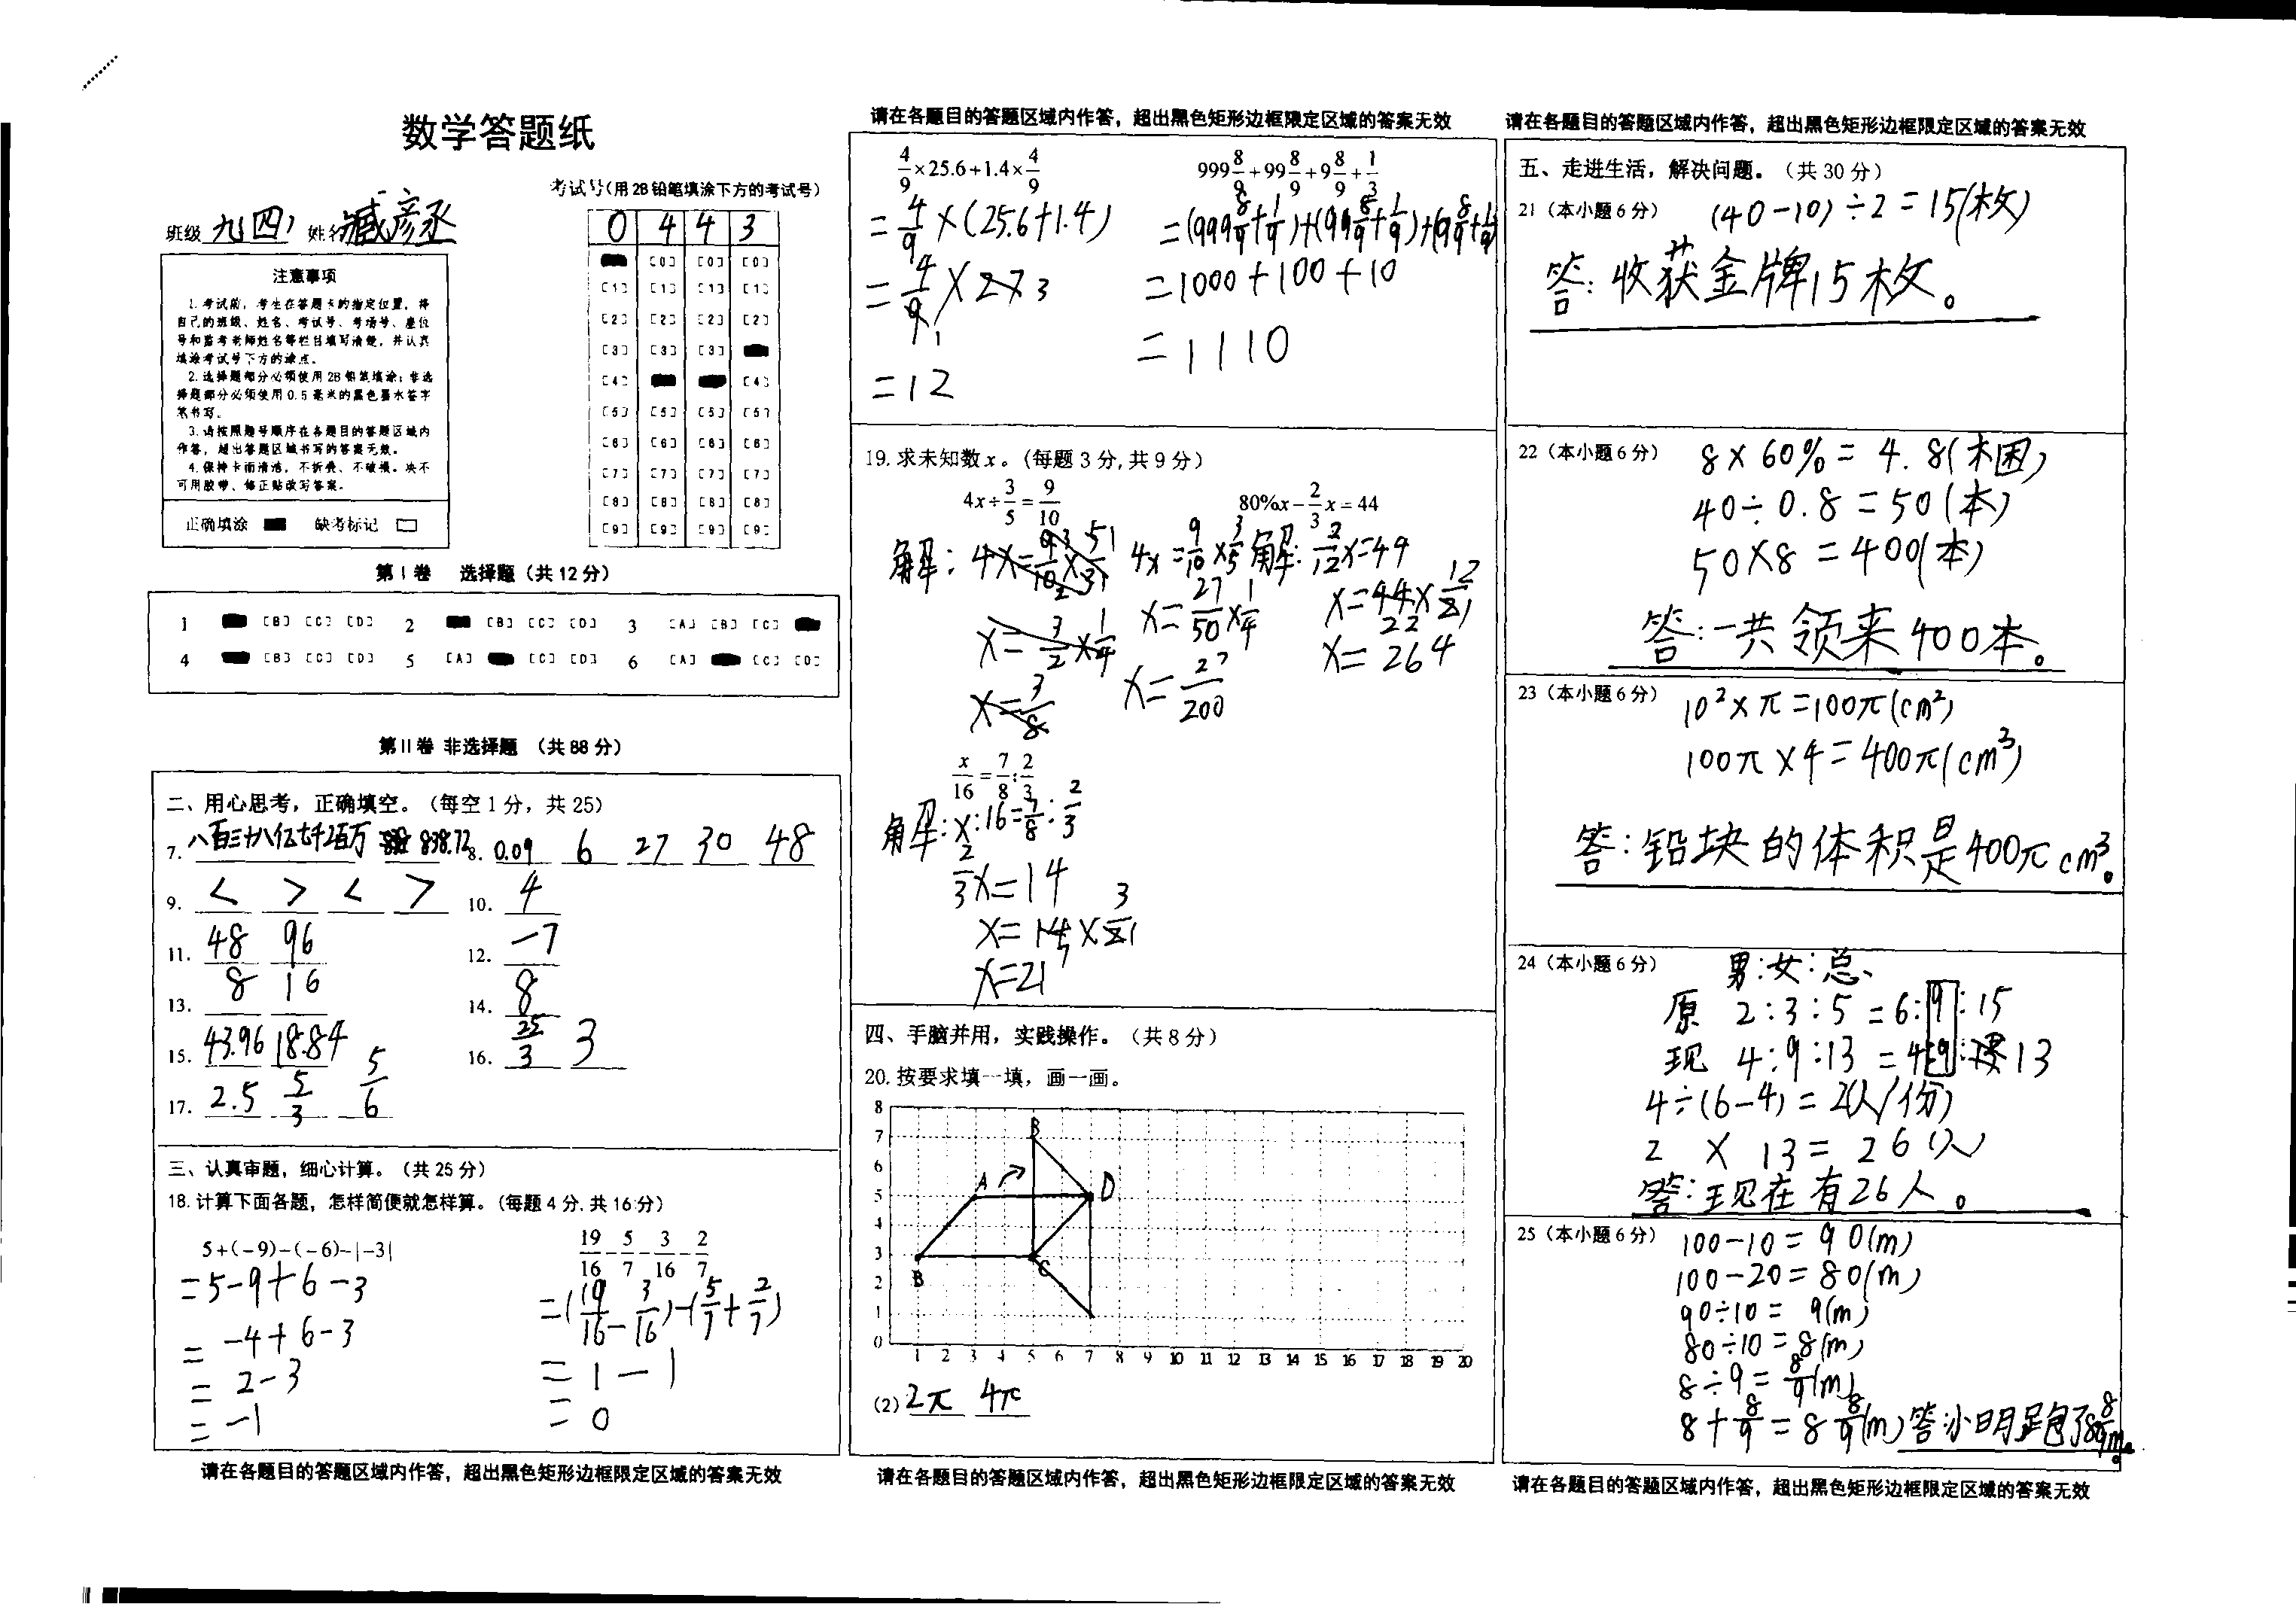 数学答题纸
班级 九(四) 姓名 臧彦丞
考试号(用2B铅笔填涂下方的考试号)
0 4 4 3
[0] [0] [0]
[1] [1] [1] [1]
[2] [2] [2] [2]
[3] [3] [3]
[4] [4]
[5] [5] [5] [5]
[6] [6] [6] [6]
[7] [7] [7] [7]
[8] [8] [8] [8]
[9] [9] [9] [9]
注意事项
1.考试前，考生在答题卡的指定位置，将
自己的班级、姓名、考试号、考场号、座位
号和监考老师姓名等栏目填写清楚，并认真
填涂考试号下方的涂点。
2.选择题部分必须使用2B铅笔填涂；非选
择题部分必须使用0.5毫米的黑色墨水签字
笔书写。
3.请按照题号顺序在各题目的答题区域内
作答，超出答题区域书写的答案无效。
4.保持卡面清洁，不折叠、不破损。决不
可用胶带、修正贴改写答案。
正确填涂 缺考标记
第I卷 选择题（共12分）
1 [B] [C] [D] 2 [B] [C] [D] 3 [A] [B] [C]
4 [B] [C] [D] 5 [A] [C] [D] 6 [A] [C] [D]
第II卷 非选择题 （共88分）
二、用心思考，正确填空。（每空1分，共25）
7. 八百三十八亿七千二百万 838.72 8. 0.09 6 27 30 48
9. < > < > 10. 4
11. 48 96 12. -7
13. 8 16 14. 8
15. 43.96 18.84 16. 25/3 3
17. 2.5 5/3 5/6
三、认真审题，细心计算。（共25分）
18.计算下面各题，怎样简便就怎样算。(每题4分,共16分)
5+(-9)-(-6)-|-3|
=5-9+6-3
= -4+6-3
= 2-3
= -1
19/16-5/7-3/16-2/7
=(19/16-3/16)-(5/7+2/7)
=1-1
=0
请在各题目的答题区域内作答，超出黑色矩形边框限定区域的答案无效
请在各题目的答题区域内作答，超出黑色矩形边框限定区域的答案无效
4/9×25.6+1.4×4/9
=4/9×(25.6+1.4)
=4/9×27 3
1
=12
999 8/9+99 8/9+9 8/9+1/3
=(999 8/9+1/9)+(99 8/9+1/9)+(9 8/9+1/9)
=1000+100+10
=1110
19.求未知数x。(每题3分,共9分)
4x÷3/5=9/10
解：
4x=9/10×3/5
x=27/50×1/4
x=27/200
80%x-2/3x=44
解：2/12x=44
x=44×12/2
22 1
x=264
x/16=7/8:2/3
解：x:16=7/8:2/3
2/3x=14
x=14×3/2
7 1
x=21
四、手脑并用，实践操作。（共8分）
20.按要求填一填，画一画。
8
7 B
6
5 A D
4
3 B C
2
1
0
1 2 3 4 5 6 7 8 9 10 11 12 13 14 15 16 17 18 19 20
(2) 2π 4π
请在各题目的答题区域内作答，超出黑色矩形边框限定区域的答案无效
请在各题目的答题区域内作答，超出黑色矩形边框限定区域的答案无效
五、走进生活，解决问题。（共30分）
21（本小题6分） (40-10)÷2=15(枚)
答：收获金牌15枚。
22（本小题6分） 8×60%=4.8(本困)
40÷0.8=50(本)
50×8=400(本)
答：一共领来400本。
23（本小题6分） 10²×π=100π(cm²)
100π×4=400π(cm³)
答：铅块的体积是400πcm³。
24（本小题6分） 男:女:总
原 2:3:5=6:9:15
现 4:9:13=4:9:13
4÷(6-4)=2(人/份)
2×13=26(人)
答：现在有26人。
25（本小题6分） 100-10=90(m)
100-20=80(m)
90÷10=9(m)
80÷10=8(m)
8÷9=8/9(m)
8+8/9=8 8/9(m) 答：小明跑了8 8/9m。
请在各题目的答题区域内作答，超出黑色矩形边框限定区域的答案无效